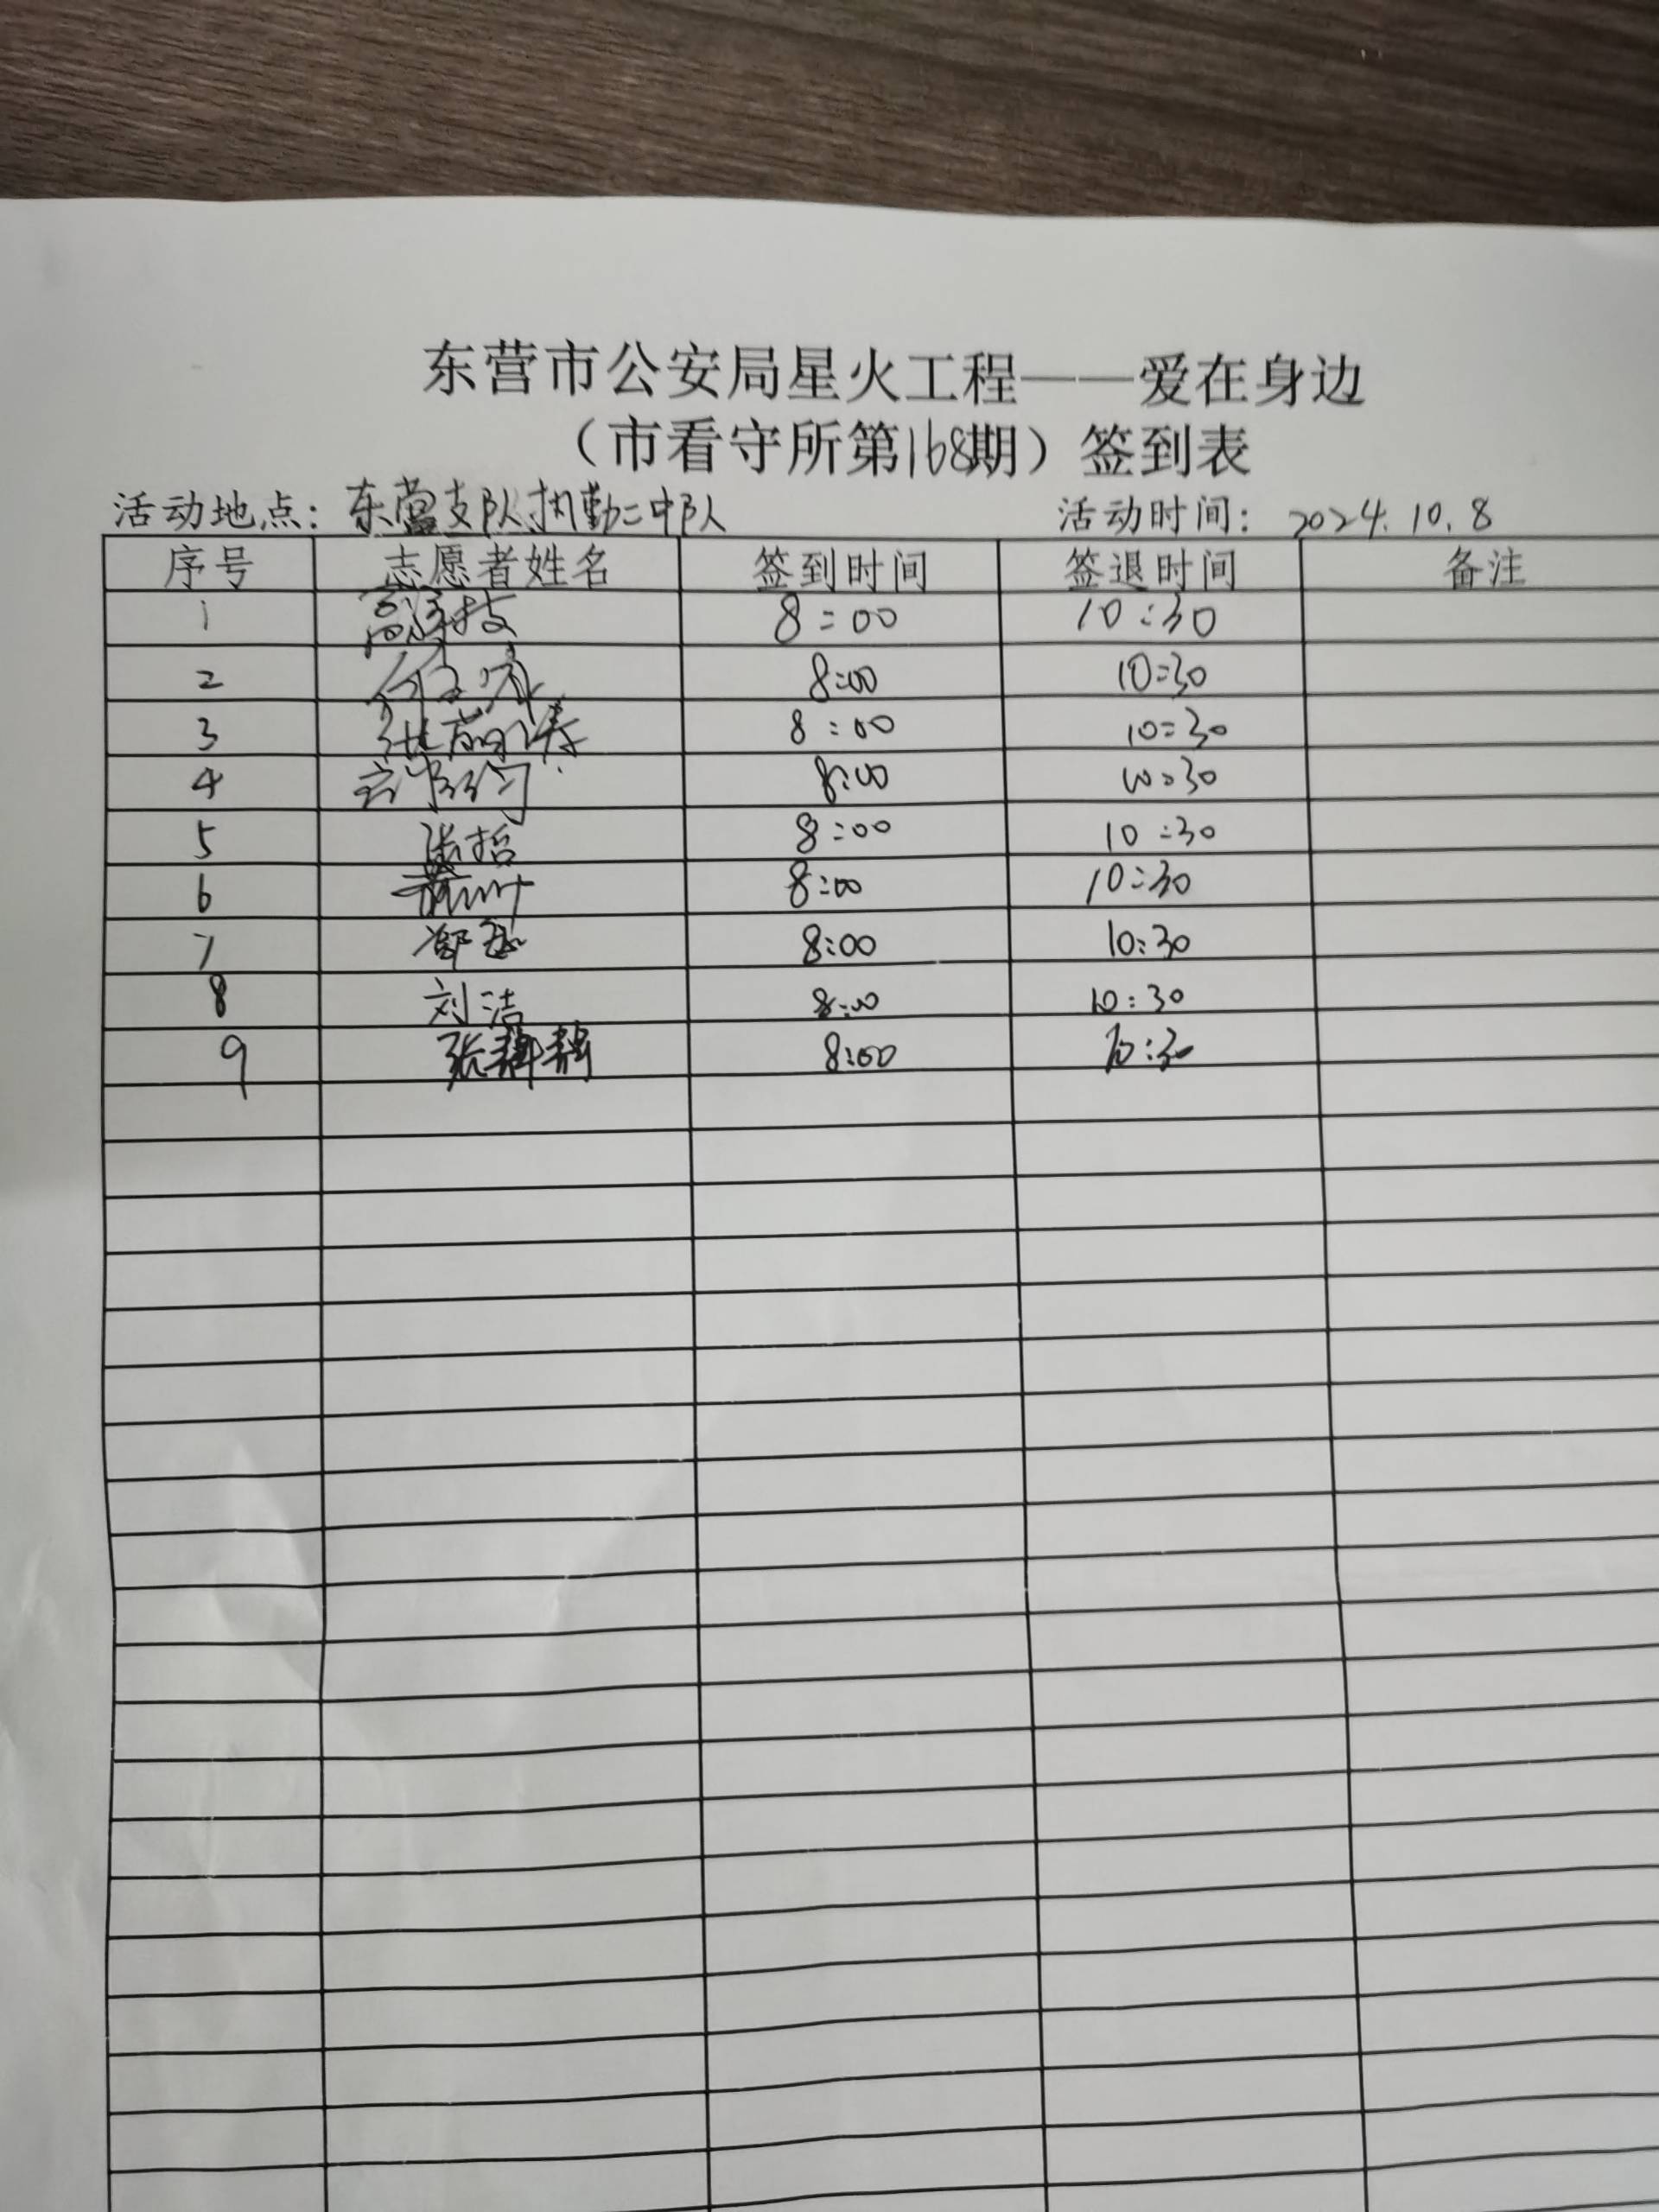 东营市公安局星火工程——爱在身边
（市看守所第168期）签到表
活动地点：东营支队执勤二中队 活动时间：2024.10.8
序号 志愿者姓名 签到时间 签退时间 备注
1 8:00 10:30
2 8:00 10:30
3 8:00 10:30
4 8:00 10:30
5 张哲 8:00 10:30
6 8:00 10:30
7 8:00 10:30
8 刘洁 8:00 10:30
9 8:00 10:30